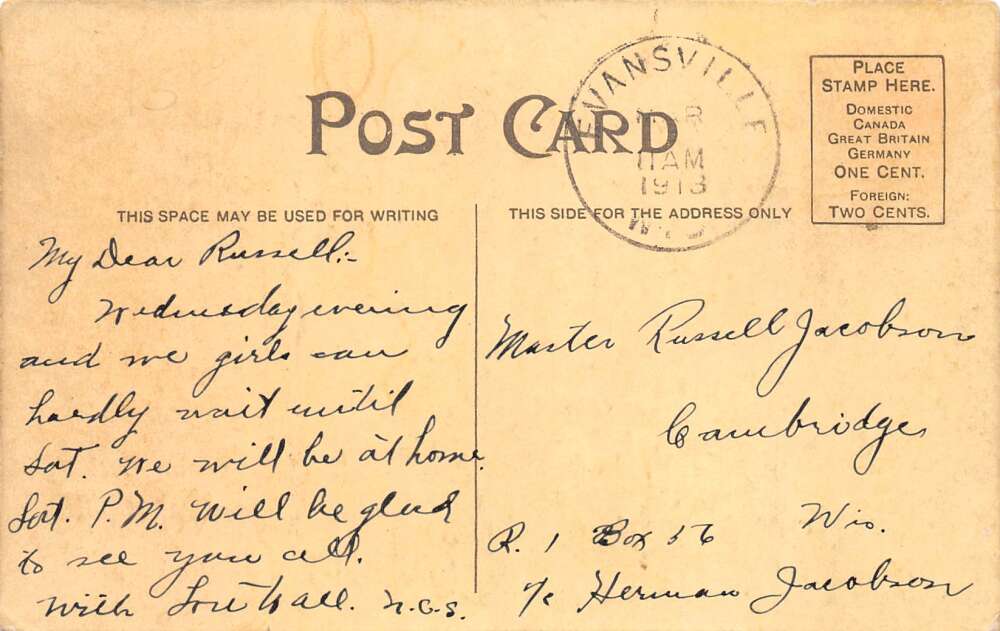 POST CARD
EVANSVILLE
11 AM
1913
WIS
PLACE
STAMP HERE.
DOMESTIC
CANADA
GREAT BRITAIN
GERMANY
ONE CENT.
FOREIGN:
TWO CENTS.
THIS SPACE MAY BE USED FOR WRITING
My Dear Russell:-
Wednesday evening
and we girls can
hardly wait until
Sat. We will be at home
Sat. P.M. Will be glad
to see you all.
With Love to all. N.C.S.
THIS SIDE FOR THE ADDRESS ONLY
Master Russell Jacobson
Cambridge
Wis.
R. 1 Box 56
c/o Herman Jacobson